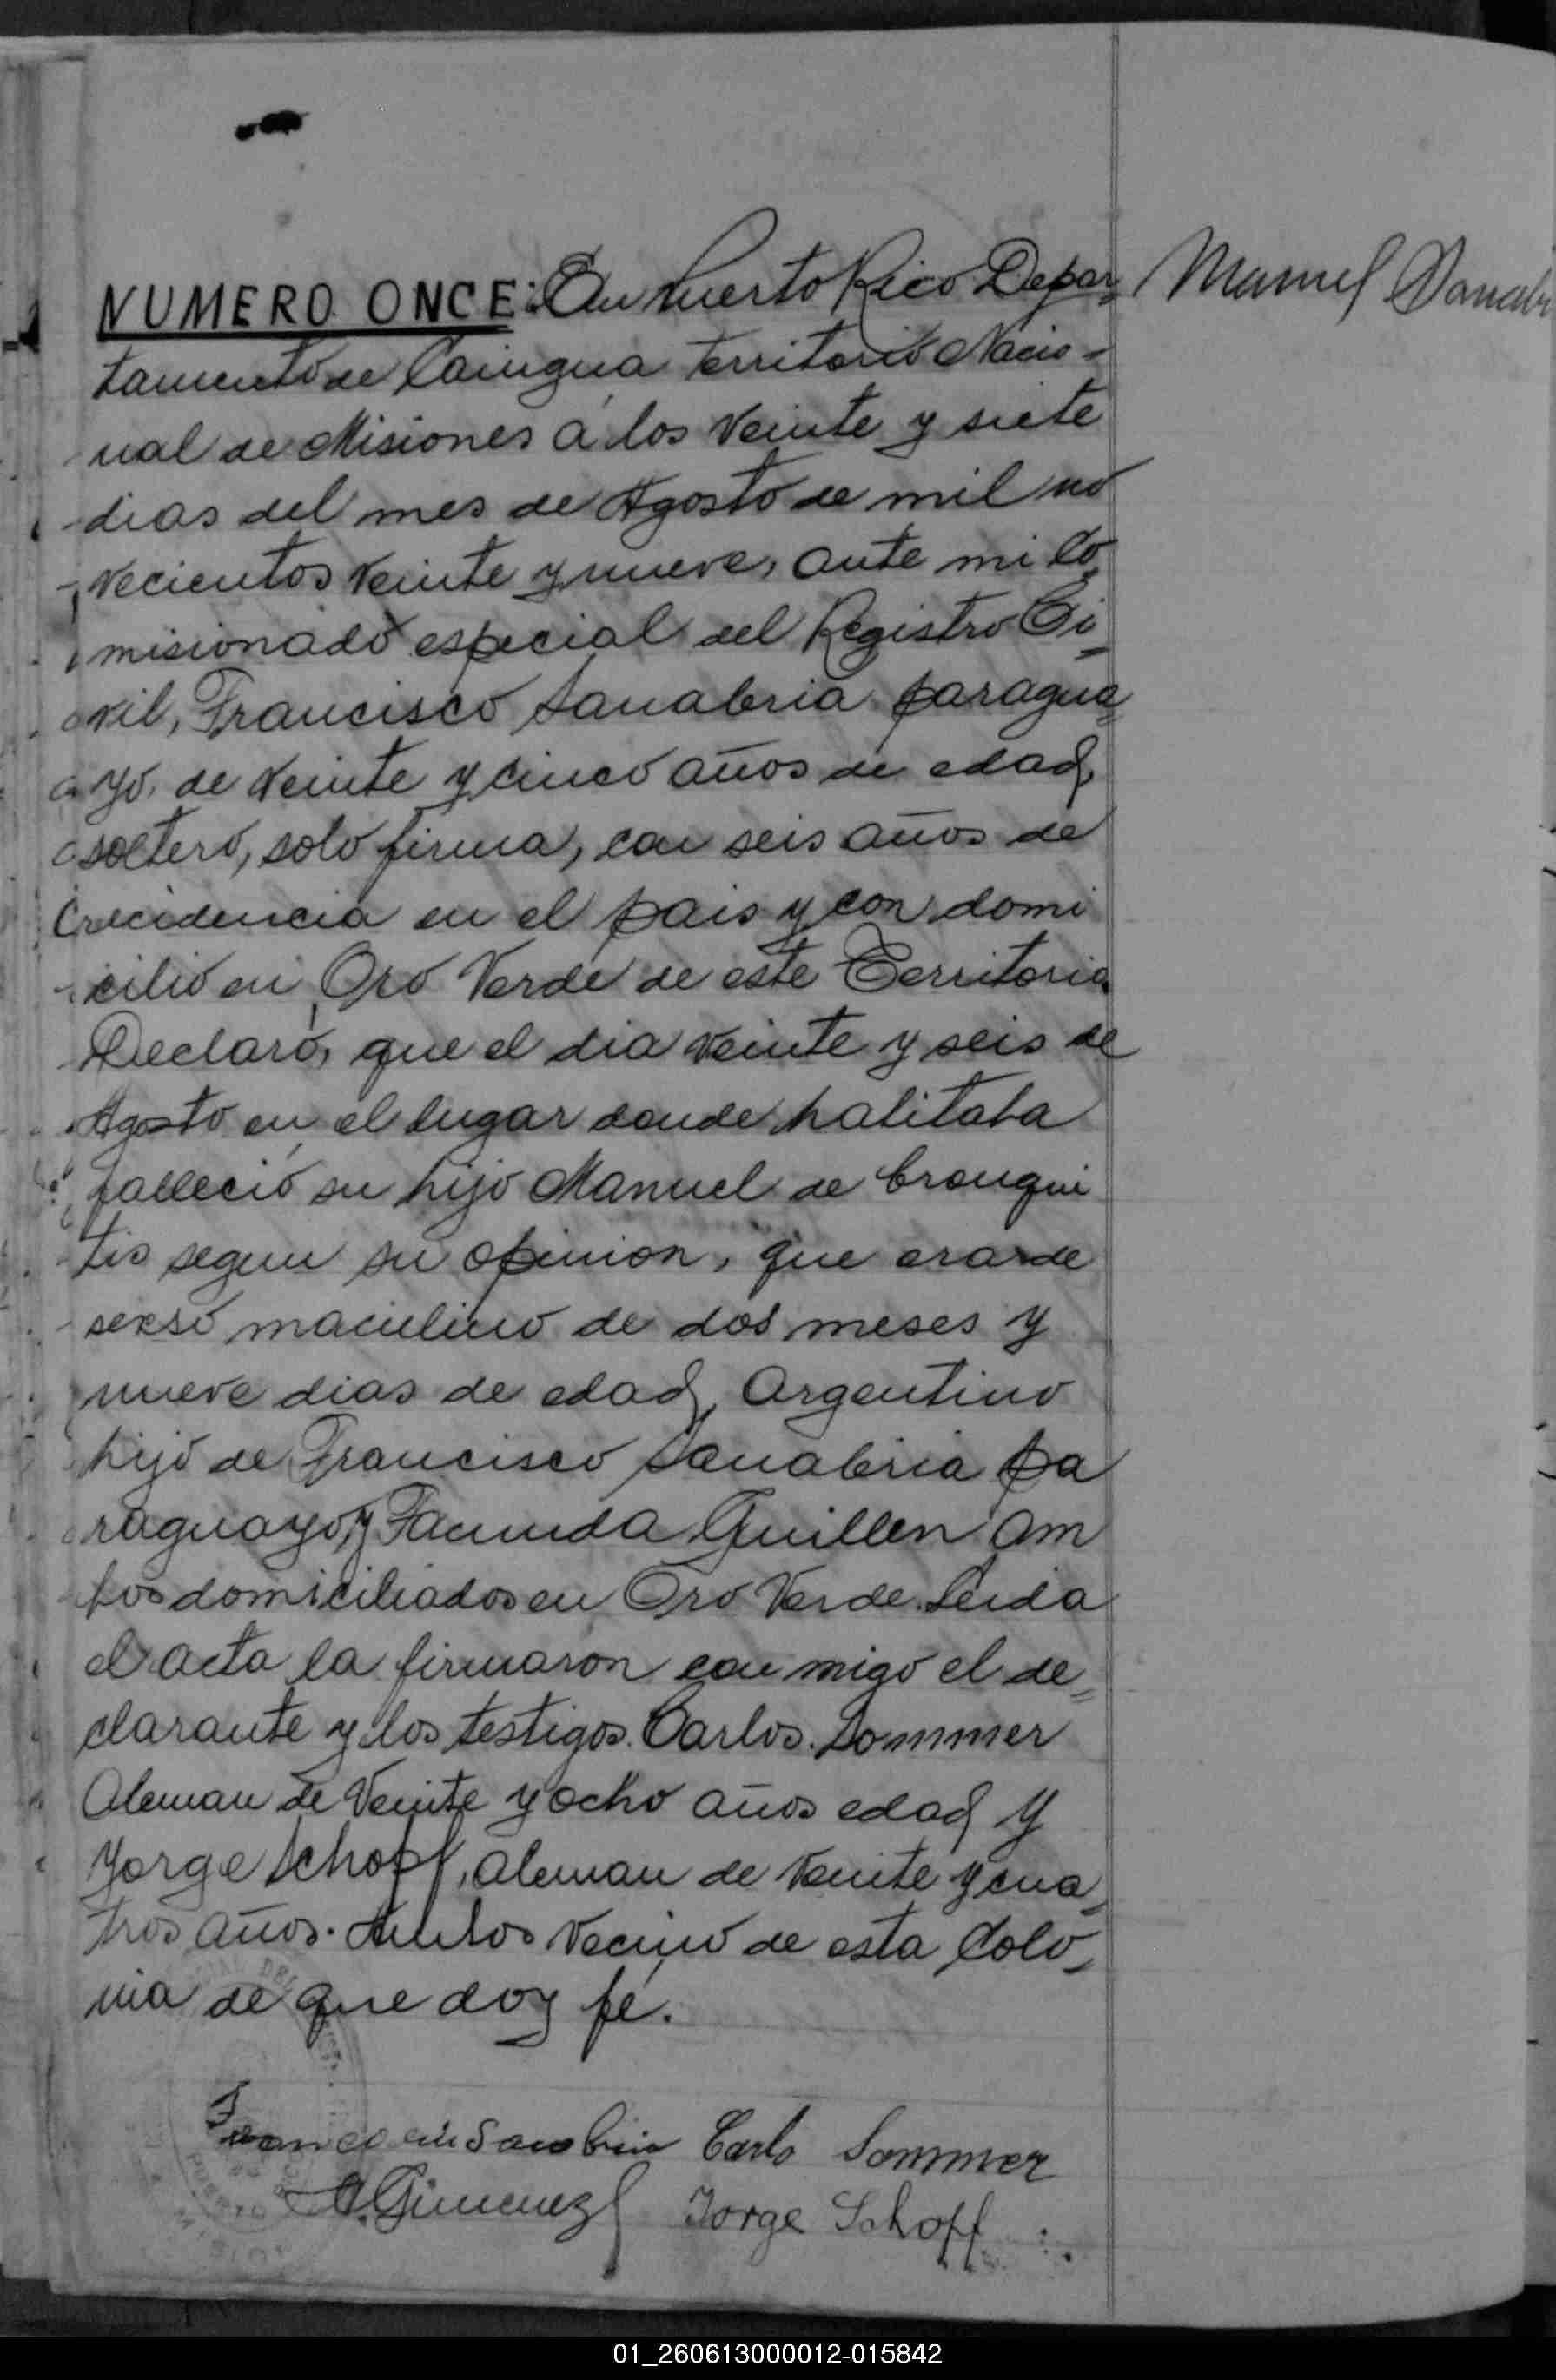 NUMERO ONCE: En Puerto Rico Depar-
Manuel Sanabr
tamento de Caingua territorio Nacio-
nal de Misiones á los veinte y siete
dias del mes de Agosto de mil no
vecientos veinte y nueve, ante mi Co
misionado especial del Registro Ci
vil, Francisco Sanabria paragua
yo, de veinte y cinco años de edad,
soltero, solo firma, con seis años de
recidencia en el pais y con domi
cilio en Oro Verde de este Territorio.
Declaró, que el dia veinte y seis de
Agosto en el lugar donde habitaba
falleció su hijo Manuel de bronqui
tis segun su opinion, que era de
sexso maculino de dos meses y
nueve dias de edad, Argentino
hijo de Francisco Sanabria pa
raguayo, y Facunda Guillen am
bos domiciliados en Oro Verde. Leida
el acta la firmaron con migo el de
clarante y los testigos. Carlos. Sommer
Aleman de Veinte y ocho años edad y
Yorge Schopf, aleman de veinte y cua
tros años. Ambos vecino de esta Colo
nia de que doy fé.
Carlo Sommer
Gimenez Jorge Schoff
01_260613000012-015842